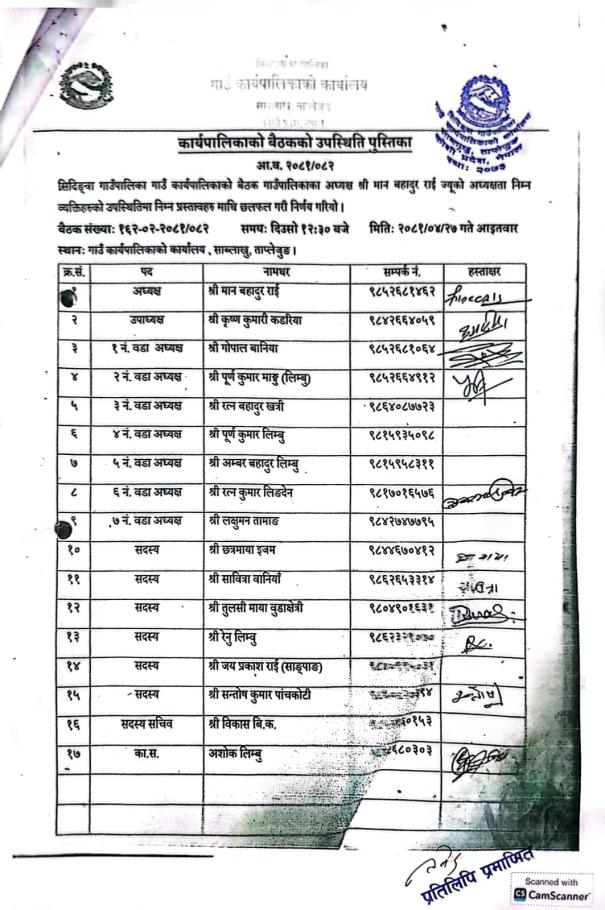 गाउँ कार्यपालिकाको कार्यालय
साब्लाखु, ताप्लेजुङ
कोशी प्रदेश, नेपाल
कार्यपालिकाको बैठकको उपस्थिति पुस्तिका
आ.व. २०८१/०८२
सिदिङ्वा गाउँपालिका गाउँ कार्यपालिकाको बैठक गाउँपालिकाका अध्यक्ष श्री मान बहादुर राई ज्यूको अध्यक्षता निम्न
व्यक्तिहरुको उपस्थितिमा निम्न प्रस्तावहरु माथि छलफल गरी निर्णय गरियो।
बैठक संख्याः १६२-०२-२०८१/०८२ समयः दिउसो १२:३० बजे मितिः २०८१/०४/२७ गते आइतवार
स्थानः गाउँ कार्यपालिकाको कार्यालय , साब्लाखु, ताप्लेजुङ।
क्र.सं. पद नामथर सम्पर्क नं. हस्ताक्षर
१ अध्यक्ष श्री मान बहादुर राई ९८५२६८१४६२
२ उपाध्यक्ष श्री कृष्ण कुमारी कडरिया ९८४२६६४०५९
३ १ नं. वडा अध्यक्ष श्री गोपाल बानिया ९८५२६८१०६४
४ २ नं. वडा अध्यक्ष श्री पूर्ण कुमार माङ्घु (लिम्बु) ९८५२६६४९१२
५ ३ नं. वडा अध्यक्ष श्री रत्न बहादुर खत्री ९८६४०८७७२३
६ ४ नं. वडा अध्यक्ष श्री पूर्ण कुमार लिम्बु ९८१५९३५०९८
७ ५ नं. वडा अध्यक्ष श्री अम्बर बहादुर लिम्बु ९८१५९५८३११
८ ६ नं. वडा अध्यक्ष श्री रत्न कुमार लिङदेन ९८१७०१६५७६
९ ७ नं. वडा अध्यक्ष श्री लक्षुमन तामाङ ९८४२७४७७९५
१० सदस्य श्री छत्रमाया इजम ९८४४६७०४१२
११ सदस्य श्री सावित्रा वानियाँ ९८६२६५३३१४ सावित्रा
१२ सदस्य श्री तुलसी माया वुडाक्षेत्री ९८०४९०१६३१
१३ सदस्य श्री रेनु लिम्बु R.C.
१४ सदस्य श्री जय प्रकाश राई (साङ्पाङ)
१५ सदस्य श्री सन्तोष कुमार पांचकोटी सन्तोष
१६ सदस्य सचिव श्री विकास बि.क.
१७ का.स. अशोक लिम्बु
प्रतिलिपि प्रमाणित
Scanned with
CS CamScanner